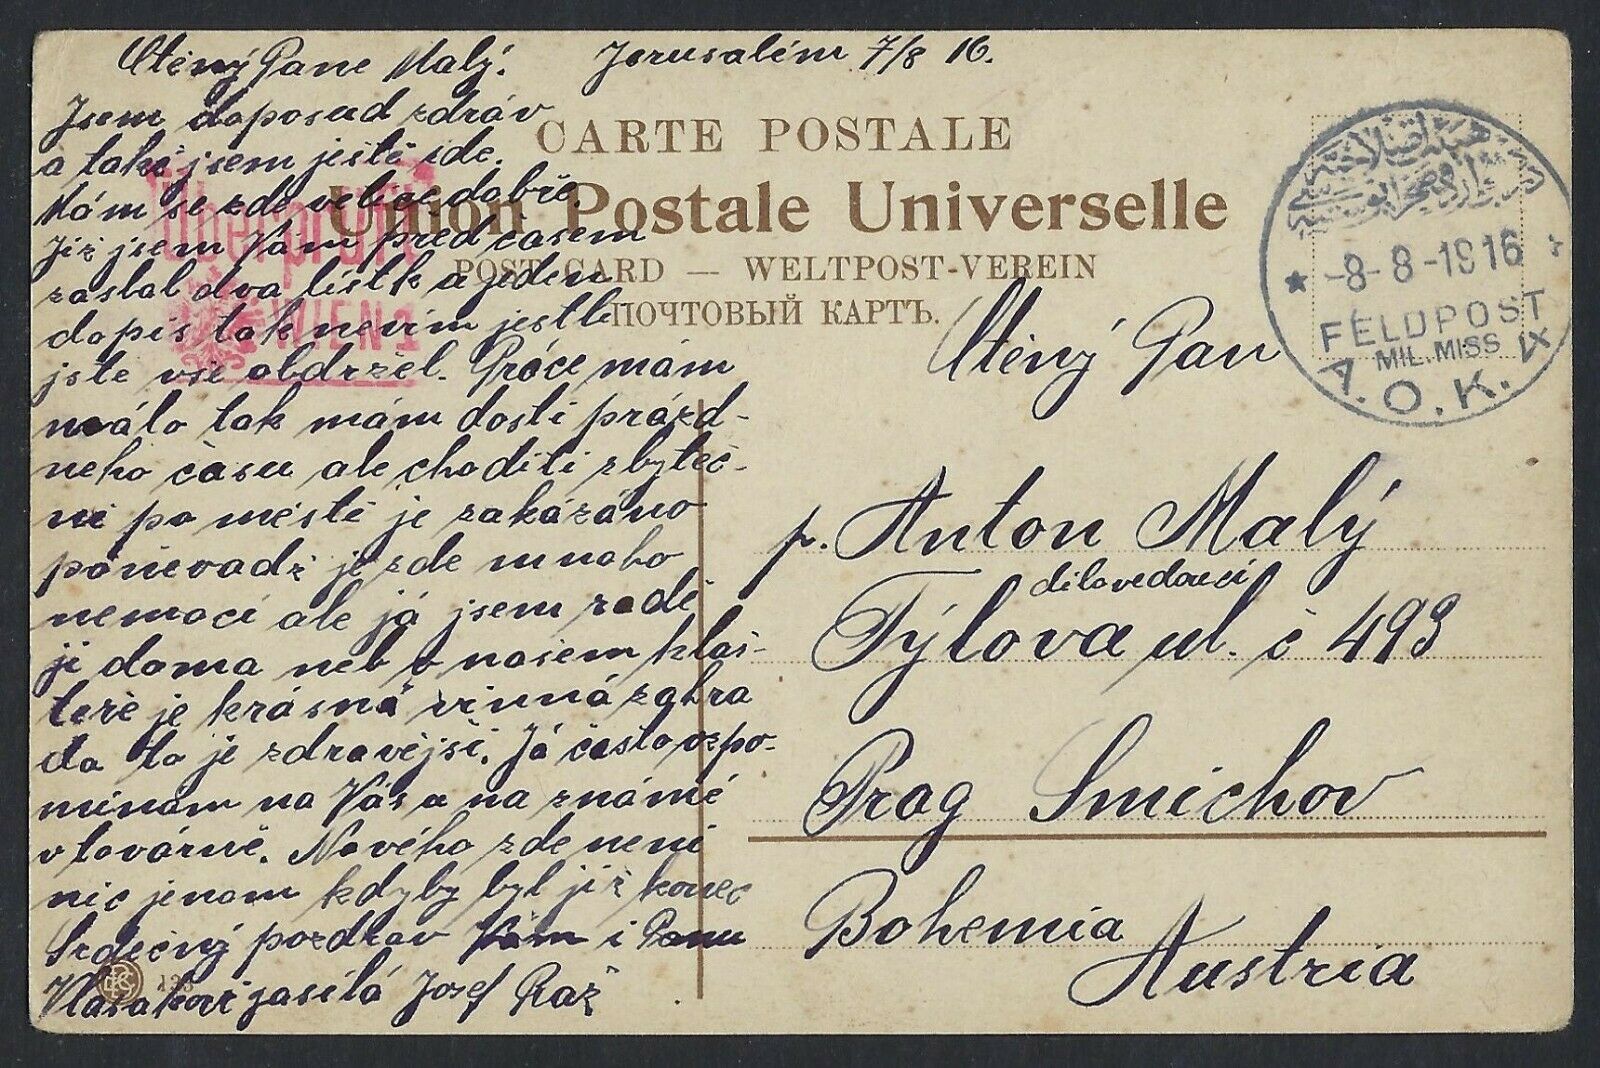 Ctěný Pane Malý. Jerusalém 7/8 16.
Jsem doposud zdráv
a také jsem ještě zde.
Mám se zde velice dobře.
Již jsem Vám před časem
zaslal dva lístk a jeden
dopis tak nevím jestli
jste vše obdržel. Práce mám
málo tak mám dosti prázd-
neho času ale choditi zbyteč-
ně po městě je zakázáno
poněvadž je zde mnoho
nemocí ale já jsem radě
ji doma neb v našem kláš-
teře je krásná vinná zahra
da to je zdravější. Já často vzpo-
mínám na Vás a na známé
v továrně. Nového zde není
nic jenom kdyby byl již konec
Srdečný pozdrav Vám i Panu
Vlasákovi zasílá Josef Raž
CARTE POSTALE
Union Postale Universelle
POST CARD — WELTPOST-VEREIN
ПОЧТОВЫЙ КАРТЪ.
Überprüft
WIEN 1
-8-8-1916
FELDPOST
MIL. MISS
A.O.K. 4
Ctěný Pan
p. Anton Malý
dílovedoucí
Týlova ul. č 493
Prag Smichov
Bohemia
Austria